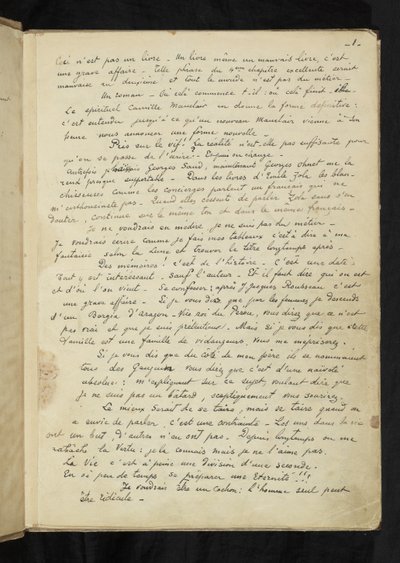 _1_
Ceci n'est pas un livre - Un livre même un mauvais livre, c'est
une grave affaire. Telle phrase du 4ème chapitre excellente serait
mauvaise au deuxième et tout le monde n'est pas du métier.
Un roman - Où celà commence t-il: où celà finit-
Le spirituel Camille Mauclair en donne la forme définitive:
c'est entendu jusqu'à ce qu'un nouveau Mauclair vienne à son
heure nous annoncer une forme nouvelle -
Pris sur le vif! La réalité n'est-elle pas suffisante pour
qu'on se passe de l'écrire? Et puis on change.
Autrefois Georges Sand, maintenant Georges Ohnet me la
rend presque supportable - Dans les livres d'Emile Zola les blan-
chisseuses comme les concierges parlent un français qui ne
m'enthousiasme pas. Quand elles cessent de parler Zola sans s'en
douter, continue sur le même ton et dans le même français -
Je ne voudrais en médire, je ne suis pas du métier -
Je voudrais écrire comme je fais mes tableaux c'est à dire à ma
fantaisie selon la lune et trouver le titre longtemps après.
Des mémoires! c'est de l'histoire. C'est une date:
Tout y est intéressant - Sauf l'auteur - Et il faut dire qui on est
et d'où l'on vient - Se confesser; après J Jacques Rousseau c'est
une grave affaire - Si je vous dis que par les femmes je descends
d'un Borgia d'Aragon Vice roi du Pérou, vous direz que ce n'est
pas vrai et que je suis prétentieux. Mais si je vous dis que cette
famille est une famille de vidangeurs, vous me mépriserez
Si je vous dis que du coté de mon père ils se nommaient
tous des Gauguin vous direz que c'est d'une naïveté
absolue: m'expliquant sur ce sujet, voulant dire que
je ne suis pas un batard, sceptiquement vous sourirez.
Le mieux serait de se taire, mais se taire quand on
a envie de parler, c'est une contrainte - Les uns dans la vie
ont un but, d'autres n'en ont pas. Depuis longtemps on me
rabâche la Vertu: je la connais mais je ne l'aime pas.
La Vie c'est à peine une division d'une seconde.
En si peu de temps se préparer une Eternité!!!
Je voudrais être un cochon: l'homme seul peut
être ridicule -